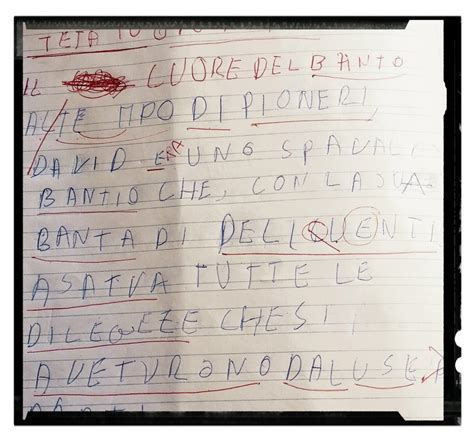 IL CUORE DEL BANTO
AL TE MPO DI PIONERI,
DAVID ERA UNO SPAVAL
BANTIO CHE, CON LA SUA
BANTA DI DELIQUENTI
ASATVA TUTTE LE
DILEGEZE CHE SI
AVETVRONO DALUSE